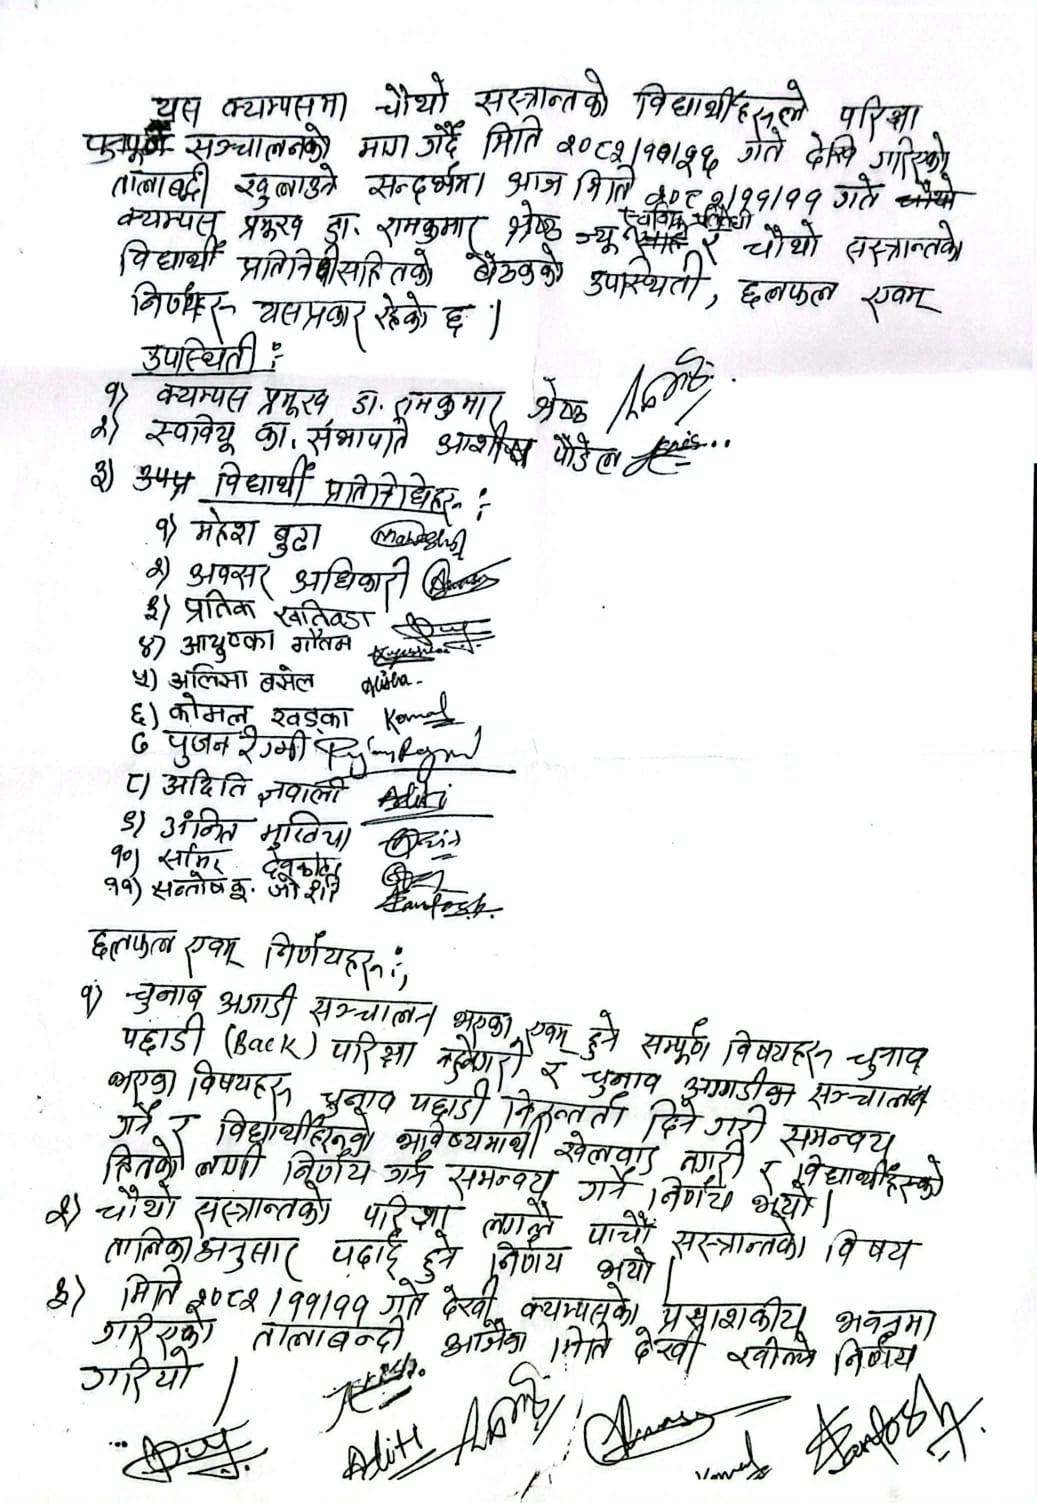 यस क्याम्पसमा चौथो सत्रान्तको विद्यार्थीहरूले परिक्षा
सञ्चालनको माग गर्दै मिति २०८२/१०/२६ गते देखि गरिएको
तालाबन्दी खुलाउने सन्दर्भमा आज मिति २०८२/११/११ गते चौथो
क्याम्पस प्रमुख डा. रामकुमार श्रेष्ठ ज्यू र चौथो सत्रान्तको
विद्यार्थी प्रतिनिधीसहितको बैठकको उपस्थिती, छलफल एवम्
निर्णयहरू यसप्रकार रहेको छ।
उपस्थिती :-
१) क्याम्पस प्रमुख डा. रामकुमार श्रेष्ठ
२) स्ववियू का. सभापति आशीष पौडेल
३) विद्यार्थी प्रतिनिधिहरू :-
१) महेश बुढा
२) अवसर अधिकारी
३) प्रतिक खतिवडा
४) आयुष्का गौतम
५) अलिसा बसेल Alisha
६) कोमल खड्का Komal
७ पुजन रेग्मी Pujan Regmi
८) अदिति ज्ञवाली Aditi
९) अंकित मुखिया
१०) समिर देवकोटा
११) सन्तोष कु. जोशी Santosh
छलफल एवम् निर्णयहरू :-
१) चुनाव अगाडी सञ्चालन भएका एवम् हुने सम्पूर्ण विषयहरू चुनाव
पछाडी (Back) परिक्षा नहुनेगरी र चुनाव अगाडीका सञ्चालन
भएका विषयहरू चुनाव पछाडी निरन्तरता दिने गरी समन्वय
गर्ने र विद्यार्थीहरूको भविष्यमाथी खेलवाड नगरी र विद्यार्थीहरूको
हितको लागी निर्णय गर्न समन्वय गर्ने निर्णय भयो।
२) चौथो सत्रान्तको परिक्षा लगत्तै पाचौं सत्रान्तको विषय
तालिका अनुसार पढाई हुने निर्णय भयो।
३) मिति २०८२/११/११ गते देखी क्याम्पसको प्रशाशकीय भवनमा
गरिएको तालाबन्दी आजैका मिति देखी खोल्ने निर्णय
गरियो।
Aditi Komal Santosh